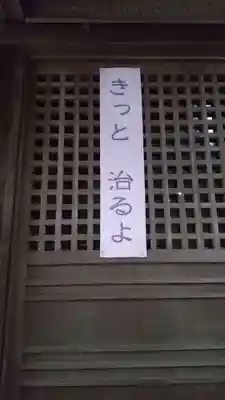 きっと 治るよ